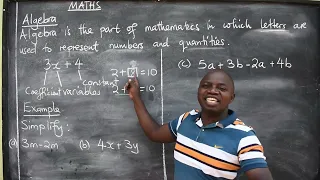 MATHS
Algebra
Algebra is the part of mathematics in which letters are
used to represent numbers and quantities.
3x + 4
2 + = 10
constant
Coefficient variables
2 + = 10
Example
Simplify:
(a) 3m - 2m (b) 4x + 3y
(c) 5a + 3b - 2a + 4b